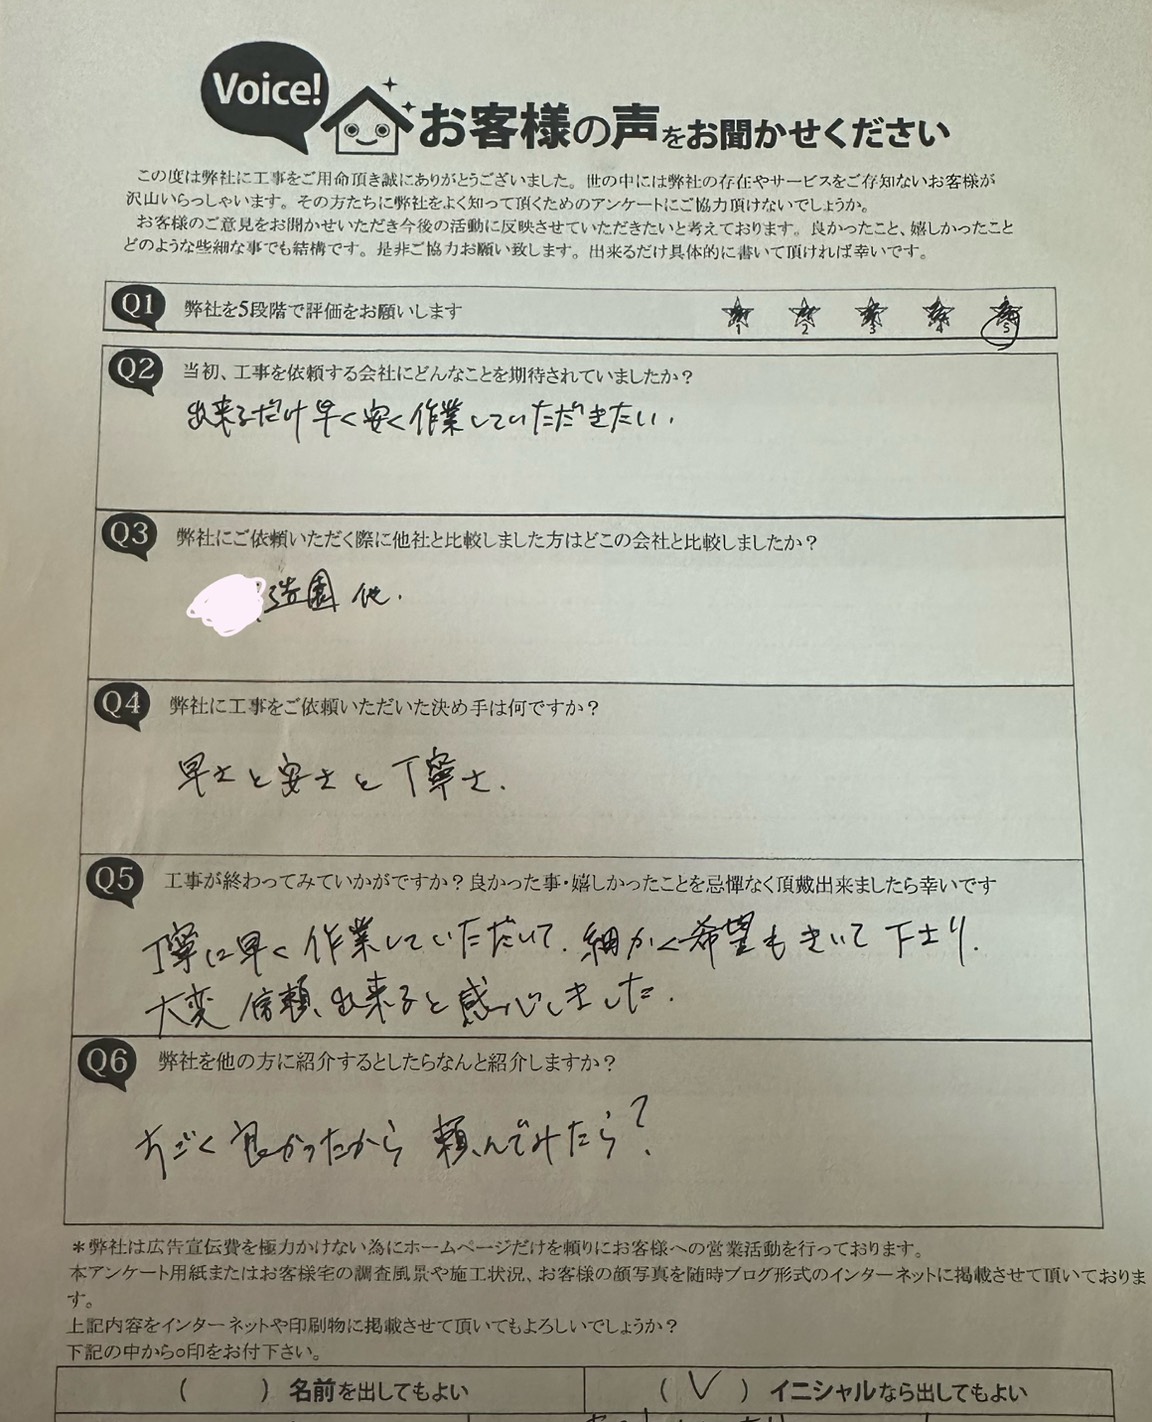 Voice!
お客様の声をお聞かせください
この度は弊社に工事をご用命頂き誠にありがとうございました。世の中には弊社の存在やサービスをご存知ないお客様が
沢山いらっしゃいます。その方たちに弊社をよく知って頂くためのアンケートにご協力頂けないでしょうか。
お客様のご意見をお聞かせいただき今後の活動に反映させていただきたいと考えております。良かったこと、嬉しかったこと
どのような些細な事でも結構です。是非ご協力お願い致します。出来るだけ具体的に書いて頂ければ幸いです。
Q1 弊社を5段階で評価をお願いします 1 2 3 4 5
Q2 当初、工事を依頼する会社にどんなことを期待されていましたか？
出来るだけ早く安く作業していただきたい.
Q3 弊社にご依頼いただく際に他社と比較しました方はどこの会社と比較しましたか？
造園 他.
Q4 弊社に工事をご依頼いただいた決め手は何ですか？
早さと安さと丁寧さ.
Q5 工事が終わってみていかがですか？良かった事・嬉しかったことを忌憚なく頂戴出来ましたら幸いです
丁寧に早く作業していただいて、細かく希望もきいて下さり、
大変信頼出来ると感心しました.
Q6 弊社を他の方に紹介するとしたらなんと紹介しますか？
すごく良かったから頼んでみたら？
＊弊社は広告宣伝費を極力かけない為にホームページだけを頼りにお客様への営業活動を行っております。
本アンケート用紙またはお客様宅の調査風景や施工状況、お客様の顔写真を随時ブログ形式のインターネットに掲載させて頂いておりま
す。
上記内容をインターネットや印刷物に掲載させて頂いてもよろしいでしょうか？
下記の中から○印をお付下さい。
( ) 名前を出してもよい ( ✓ ) イニシャルなら出してもよい